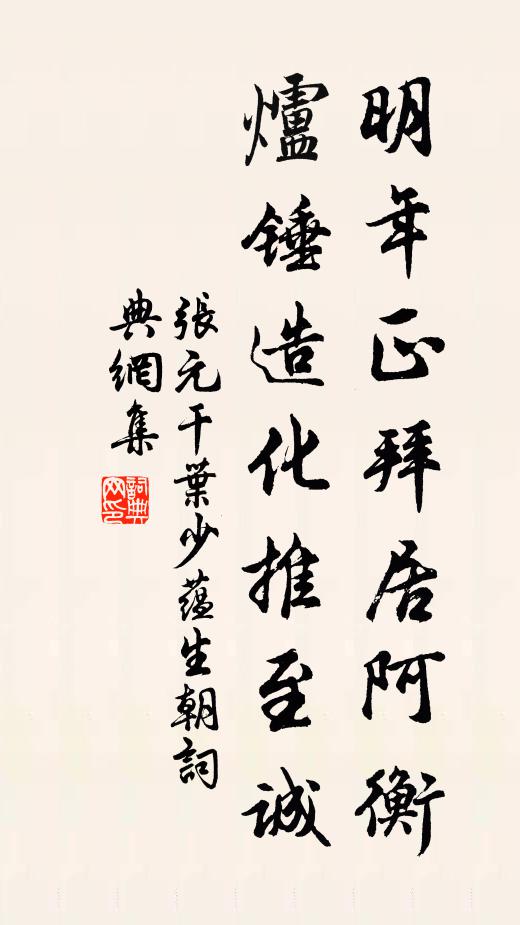 明年正拜居阿衡
爐錘造化推至誠
張元干葉少蕴生朝詞
典網集
詞典网印